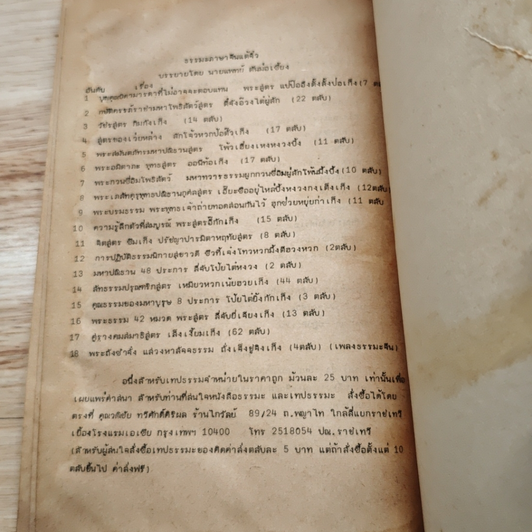 ธรรมะภาษาจีนแต้จิ๋ว
บรรยายโดย นายแพทย์ ตันม่อเซี้ยง
อันดับ เรื่อง
1 พระสูตร (7
2 (22 ตลับ)
3 วัชระสูตร กิมกังเก็ง (14 ตลับ)
4 สูตรของเว่ยหล่าง ลักโจ้วหวกป้อติ้วเก็ง (17 ตลับ)
5 พระสมันตภัทรมหาปณิธานสูตร โพ้วเฮี้ยงเหงหงวงปิ้ง (11 ตลับ)
6 พระอมิตาภะ พุทธสูตร ออนีท้อเก็ง (17 ตลับ)
7 พระกวนซีอิมโพธิสัตว์ มหาทวารธรรมมุกกวนซีอิมผู่สักโพ้วมึ้งปิ้ง (10 ตลับ)
8 (12 ตลับ)
9 พระบรมธรรม พระพุทธเจ้าถ่ายทอดสอนกันไว้ ฮุกช่วยหยุ่ยก่าเก็ง (11 ตลับ
10 ความรู้สึกตัวที่สมบูรณ์ พระสูตรอี้กักเก็ง (15 ตลับ)
11 จิตสูตร ซิมเก็ง ปรัชญาปารมิตาหฤทัยสูตร (8 ตลับ)
12 การปฏิบัติธรรมนิกายสุขาวดี (2ตลับ)
13 มหาปณิธาน 48 ประการ สี่จับโป้ยไต่หงวง (2 ตลับ)
14 สัทธรรมปุรณฑริกสูตร เหมี่ยวหวกเน้ยฮวยเก็ง (44 ตลับ)
15 คุณธรรมของมหาบุรุษ 8 ประการ โป้ยไต่ยิ้งกักเก็ง (3 ตลับ)
16 พระธรรม 42 หมวด พระสูตร สี่จับยี่เจียงเก็ง (13 ตลับ)
17 ศูรางคมสมาธิสูตร เล็งเงี้ยมเก็ง (62 ตลับ)
18 พระถังซำจั๋ง แสวงหาสัจจธรรม ถั่งเจ็งชูจิงเก็ง (4ตลับ) (เพลงธรรมะจีน)
อนึ่งสำหรับเทปธรรมจำหน่ายในราคาถูก ม้วนละ 25 บาท เท่านั้นเพื่อ
เผยแพร่ศาสนา สำหรับท่านที่สนใจหนังสือธรรมะ และเทปธรรมะ สั่งซื้อได้โดย
ตรงที่ คุณวศิชัย ทวีศักดิ์ศิริผล ร้านไทรัตน์ 89/24 ถ.พญาไท ใกล้สี่แยกราชเทวี
เยื้องโรงแรมเอเซีย กรุงเทพฯ 10400 โทร 2518054 ปณ.ราชเทวี
(สำหรับผู้สนใจสั่งซื้อเทปธรรมะของคิดค่าส่งตลับละ 5 บาท แต่ถ้าสั่งซื้อตั้งแต่ 10
ตลับขึ้นไป ค่าส่งฟรี)